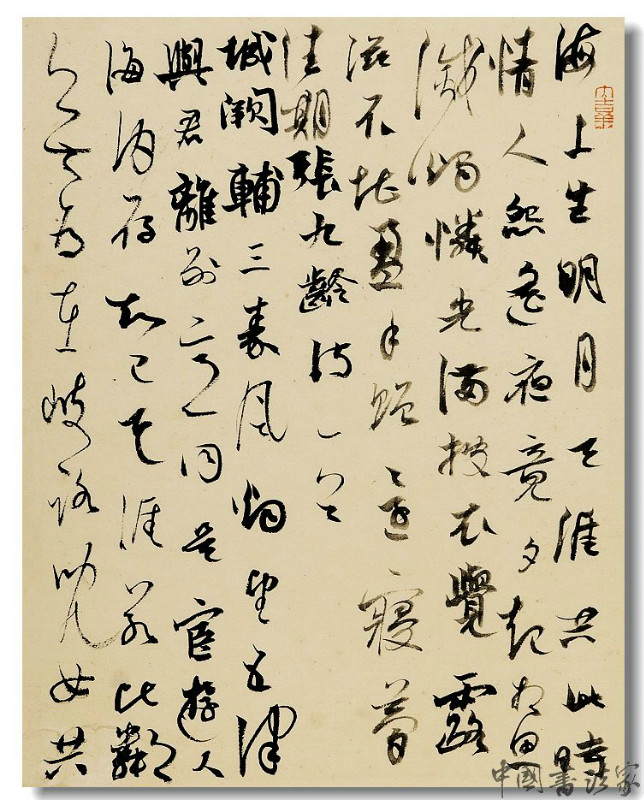 海上生明月天涯共此時
情人怨遙夜竟夕起相思
滅燭憐光滿披衣覺露
滋不堪盈手贈還寢夢
佳期張九齡詩一首
城闕輔三秦風烟望五津
與君離別意同是宦遊人
海內存知己天涯若比鄰
無為在岐路兒女共
中國書法家